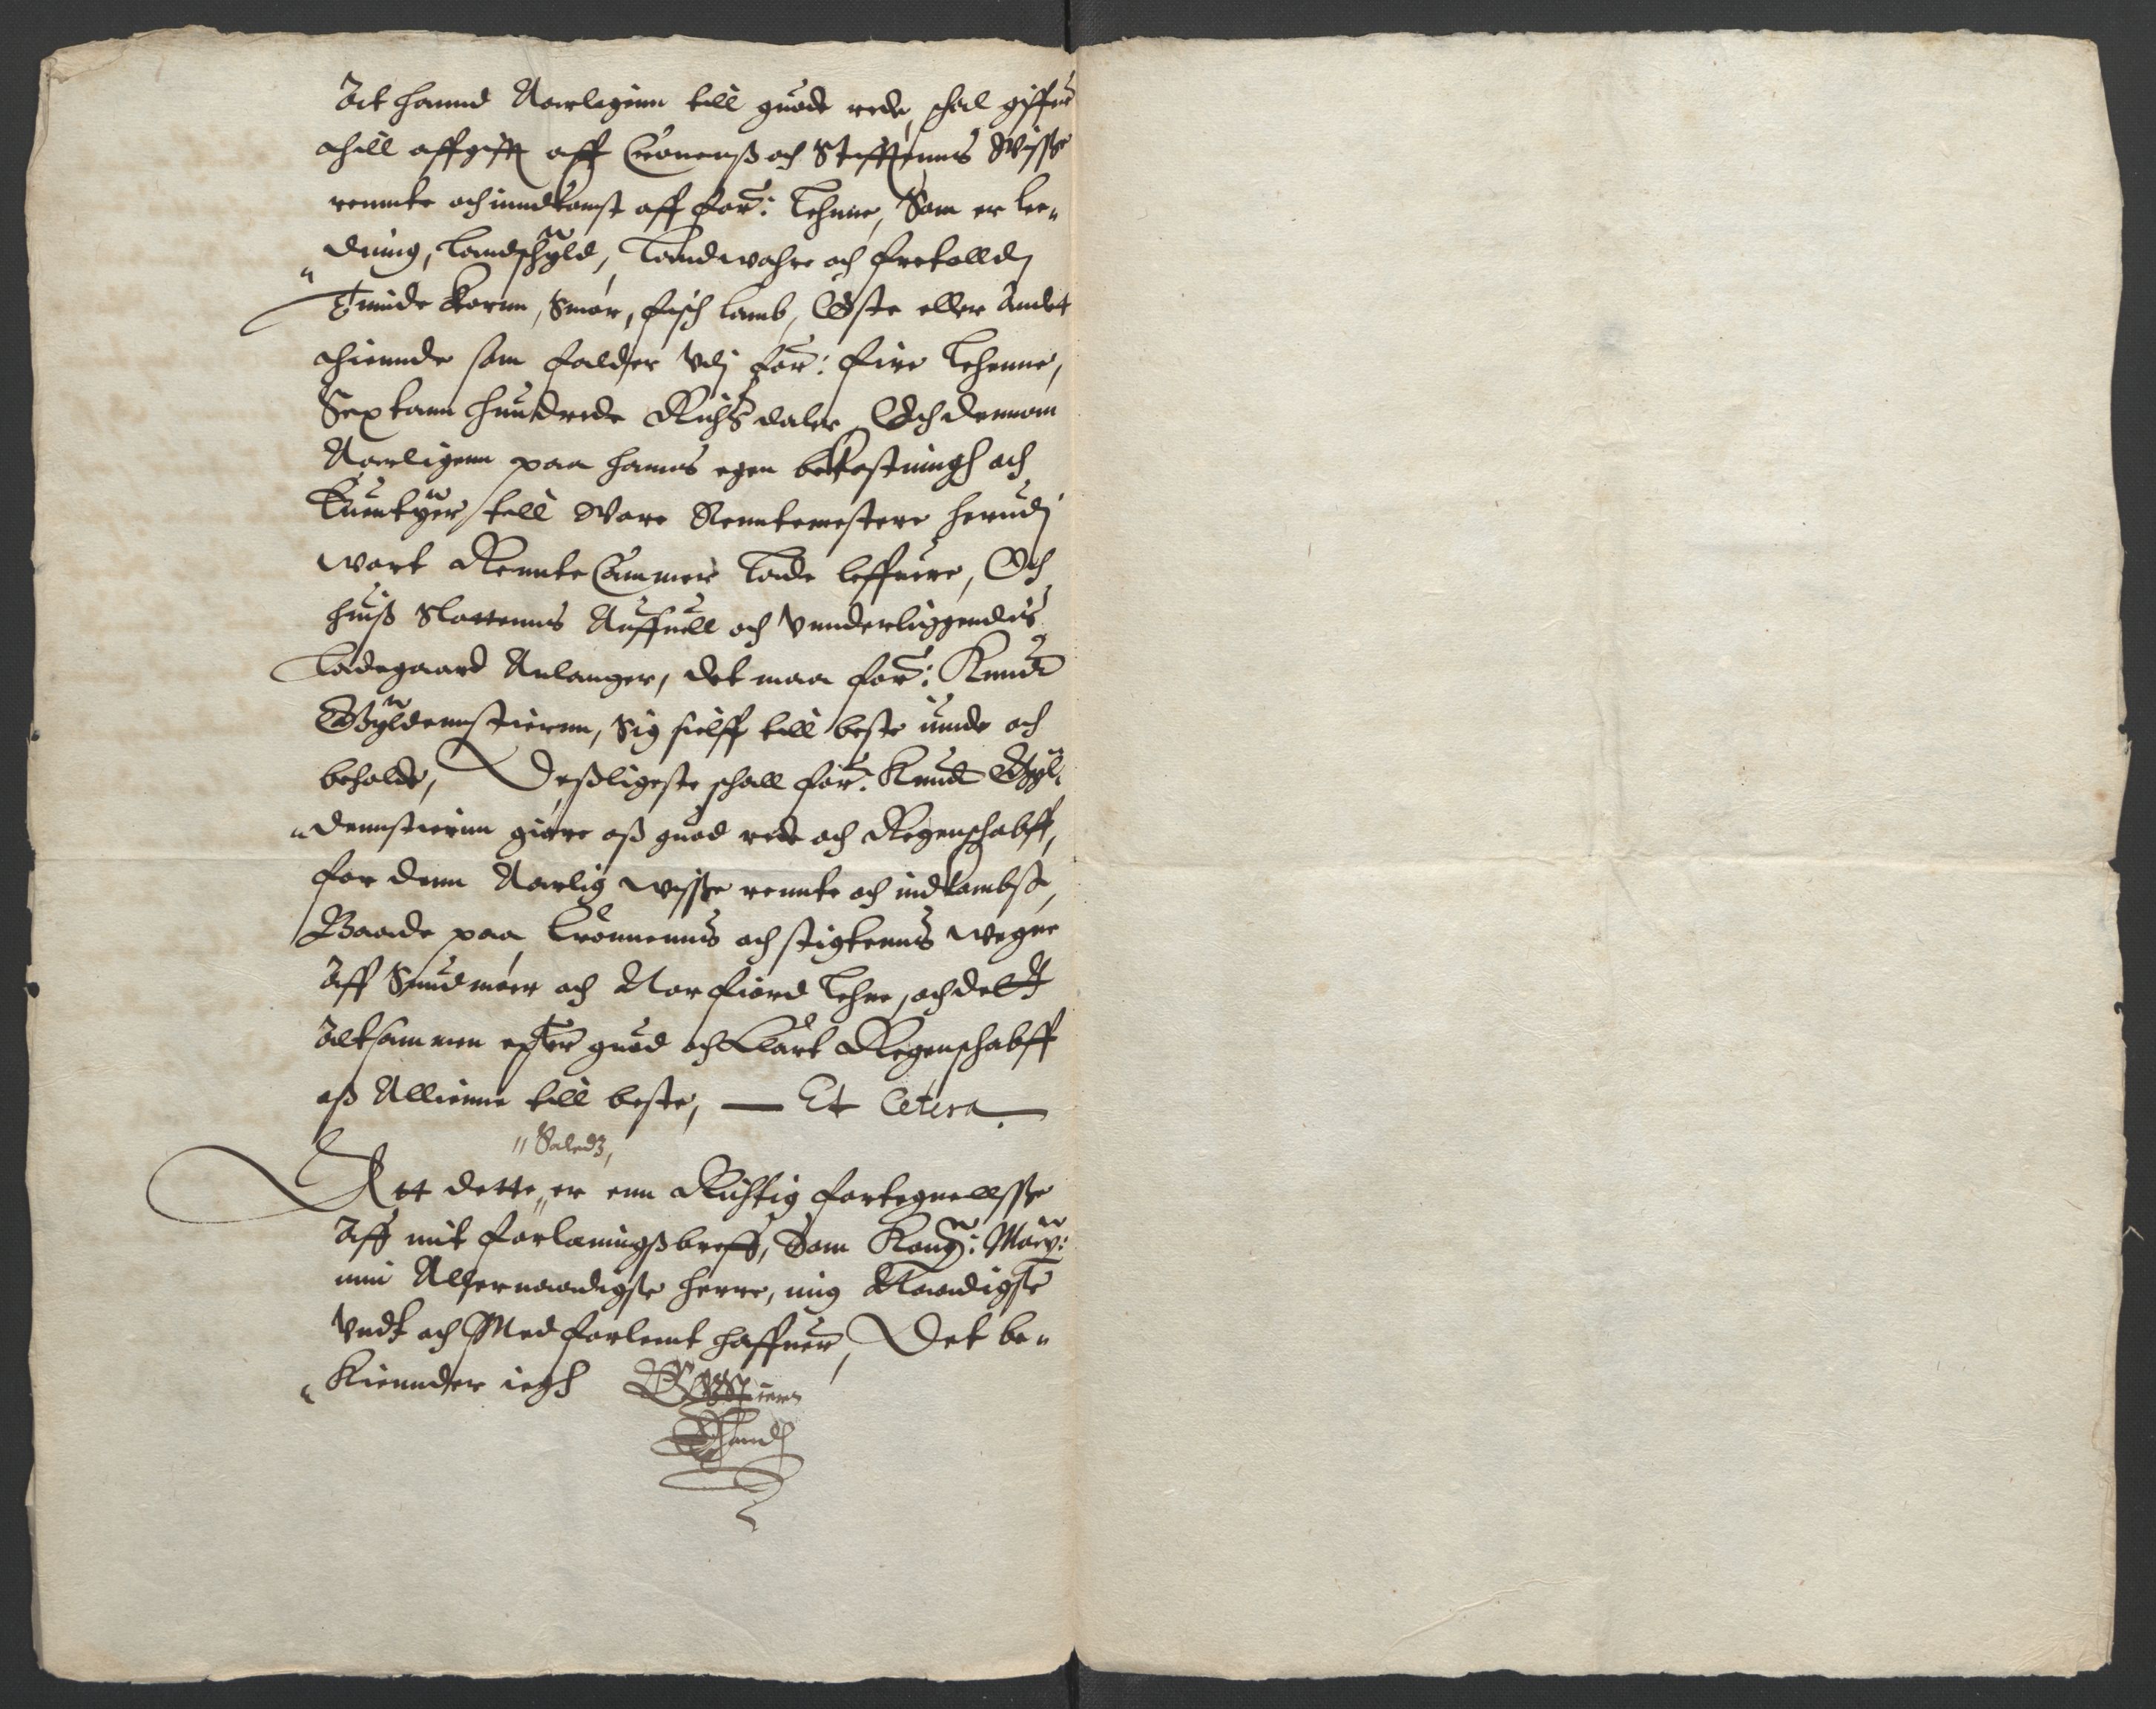 At hannd Aarliginn till guode rede, schal giffue
thill affgifft aff Cronenß och Stifftenns Wisße
rennte och inndkomst aff for: Lehnne, Som er lee„
„ding, Landschyld, Landwahre och Fretolld,
Tiunde Kornn, Smør, fisch lamb, Oste eller Andet
thiennde som falder Vdj for: fire Lehenne,
Sextann hundrede Richs daler, Och dennom
Aarligenn paa hanns egen bekostningh och
Euentyer, till Wore Renntemestere herudj
wort Rennte Cammer Lade leffuere, Och
huis Slottenns Auffuell och Vnnderliggendis
Ladegaard Anlanger, det maa for: Knud
Gyldennstiernn, Sig sielff till beste niude och
beholde, Deßligeste schall for: Knud Gyl„
„dennstiernn giøre oß guod rede och Regenschabff,
for denn Aarlig wisße rennte och indkombst,
Baade paa Cronnenns och stigtenns wegne
Aff Sundmøer och Norfiord Lehne, och det
Altsammen efter guod och klart Regenschabff
oß Allienne till beste, — Et Cetera.
„Saledz,
Att dette„ er enn Richtig fortegnellsße
Aff mit forlaningsbreff, Som Kong: May:
min Allernaadigste herre, mig Naadigste
Vndt och Med forlent haffuer, Det be„
„Kiennder iegh
Egen handt